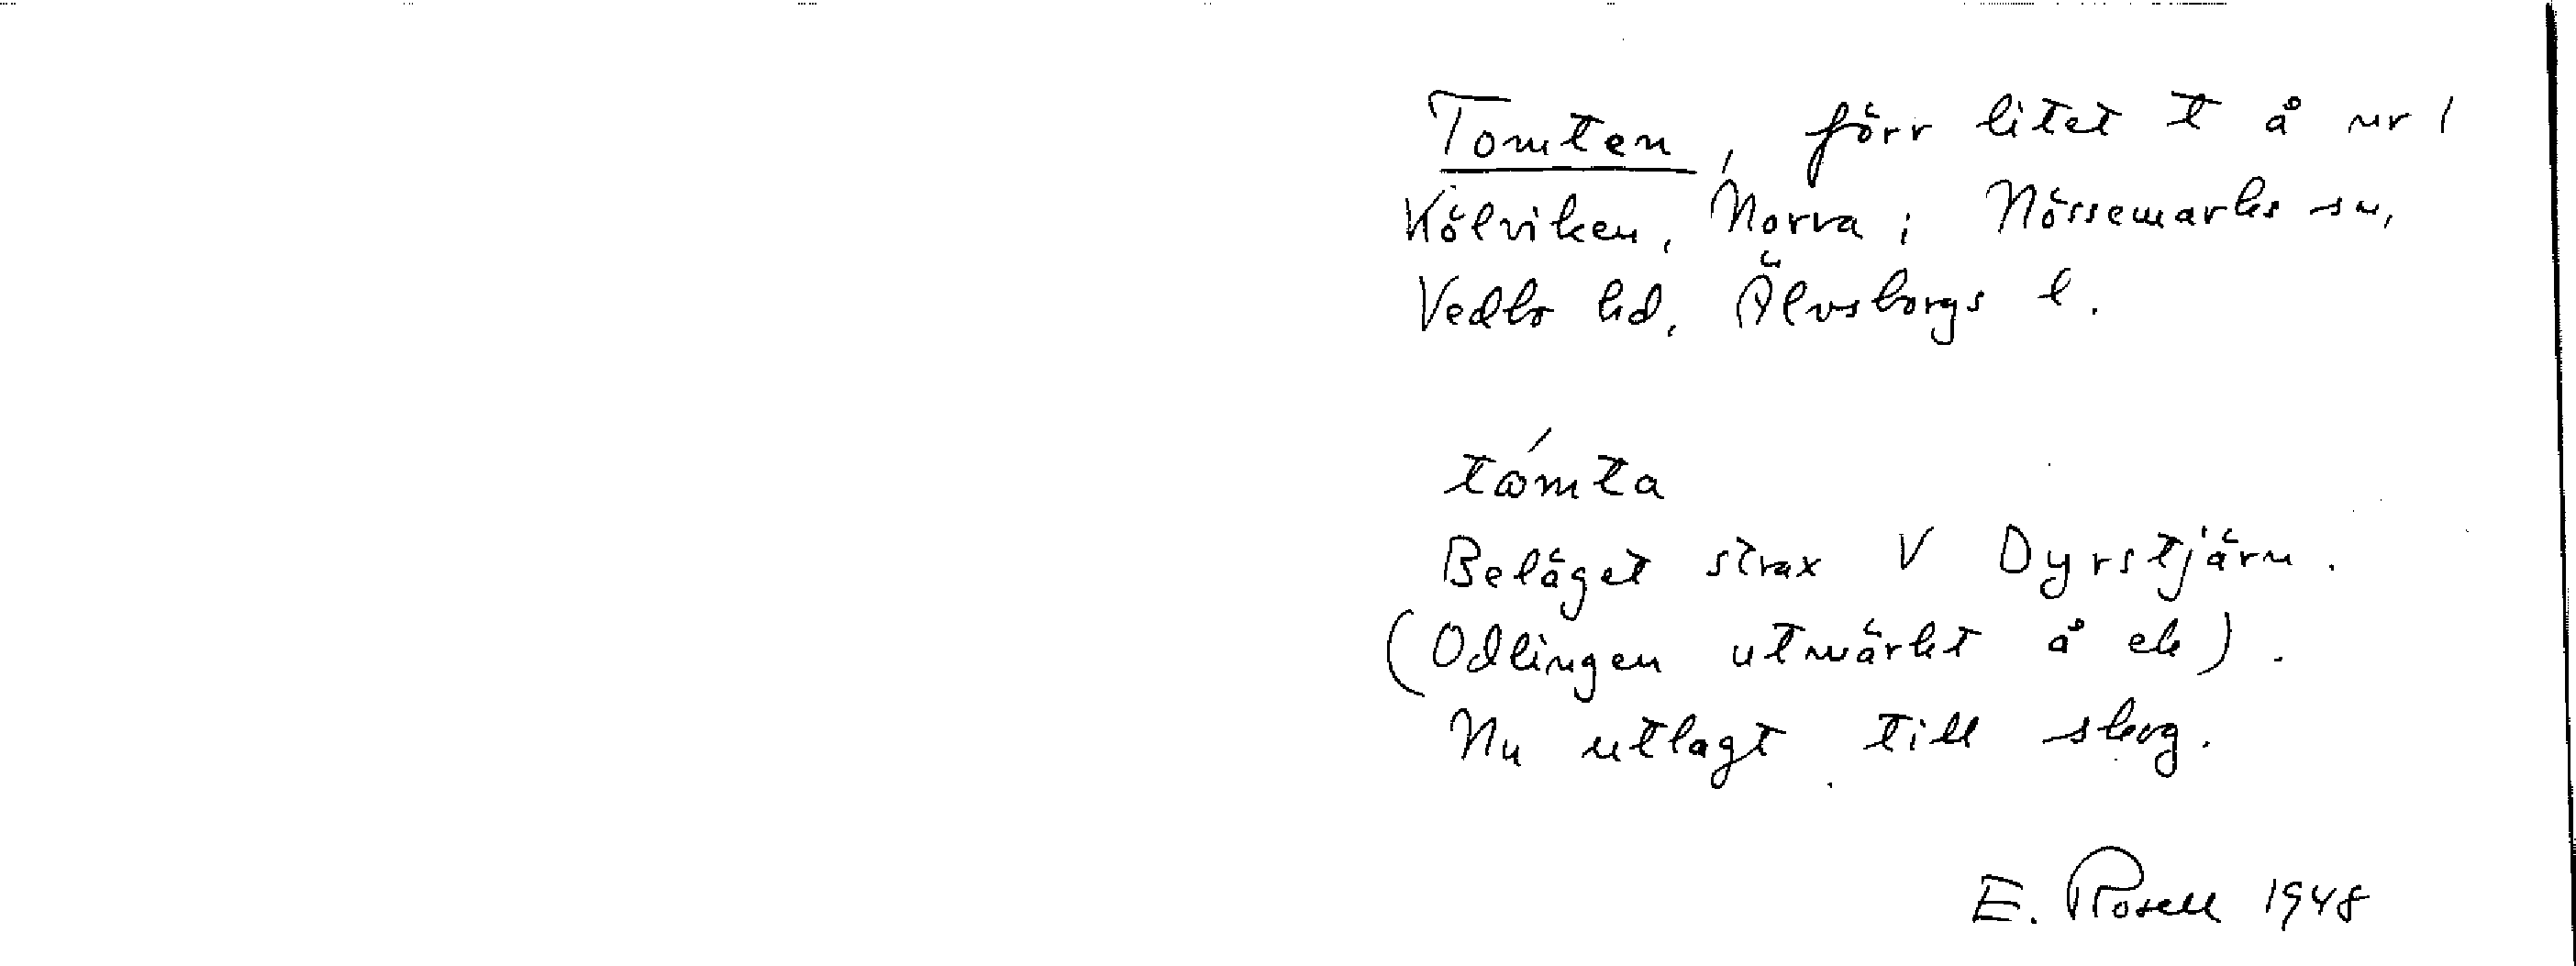 Tomten, förr litet t å nr 1
Kölviken, Norra; Nössemarks sn,
Vedbo hd, Älvsborgs l.
tómta
Beläget strax V Dyrstjärn.
(Odlingen utmärkt å ek).
Nu utlagt till skog.
E. Rosell 1948